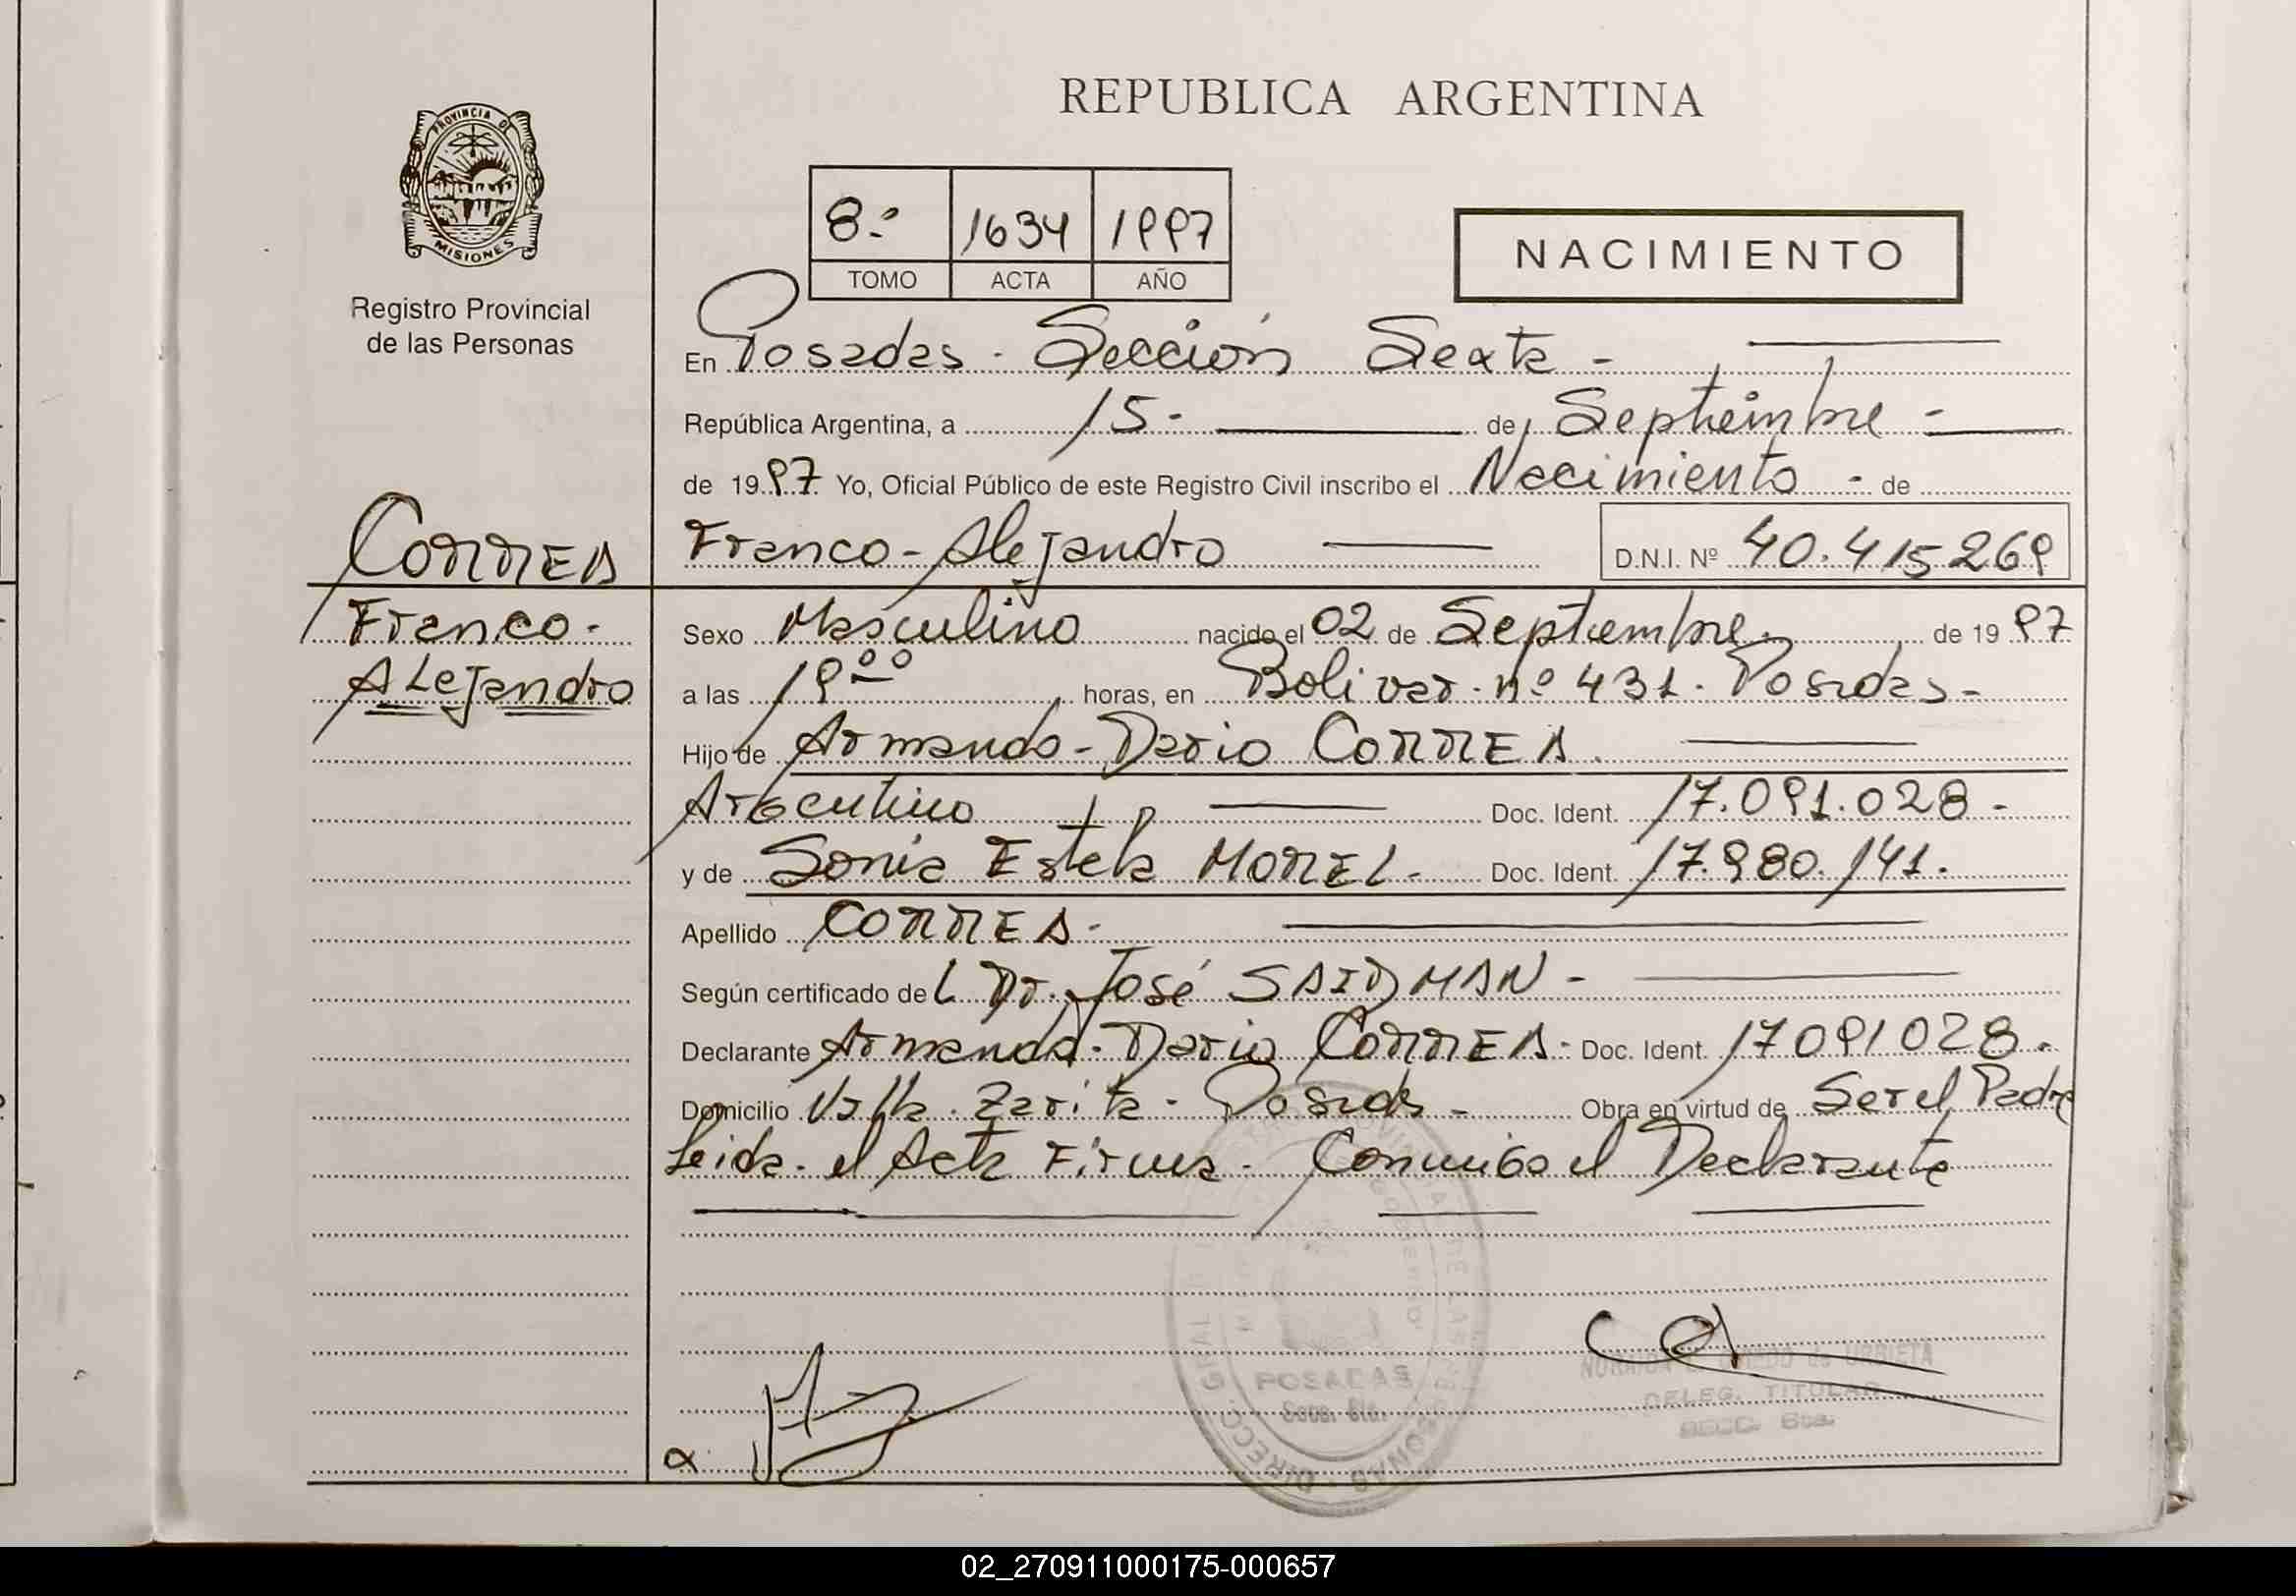 REPUBLICA ARGENTINA
PROVINCIA DE
MISIONES
Registro Provincial
de las Personas
8º 1634 1997
TOMO ACTA AÑO
NACIMIENTO
En Posadas - Sección Sexta -
República Argentina, a 15 - de Septiembre -
de 1997 Yo, Oficial Público de este Registro Civil inscribo el Nacimiento - de
Franco - Alejandro D.N.I. Nº 40.415269
CORREA
Franco -
Alejandro
Sexo Masculino nacido el 02 de Septiembre de 1997
a las 19 ºº horas, en Bolivar - nº 431 - Posadas -
Hijo de Armando - Dario CORREA.
Argentino Doc. Ident. 17.091.028 -
y de Sonia Estela MOREL - Doc. Ident. 17.980.141.
Apellido CORREA -
Según certificado del Dr. José SAIDMAN -
Declarante Armando - Dario CORREA - Doc. Ident. 17091028.
Domicilio Villa Zarita - Posadas - Obra en virtud de Ser el Padre
Leida - el Acta Firma - Conmigo el Declarante
POSADAS
Secc. 6ta.
de URBIETA
DELEG. TITULAR
SECC. 6ta.
02_270911000175-000657